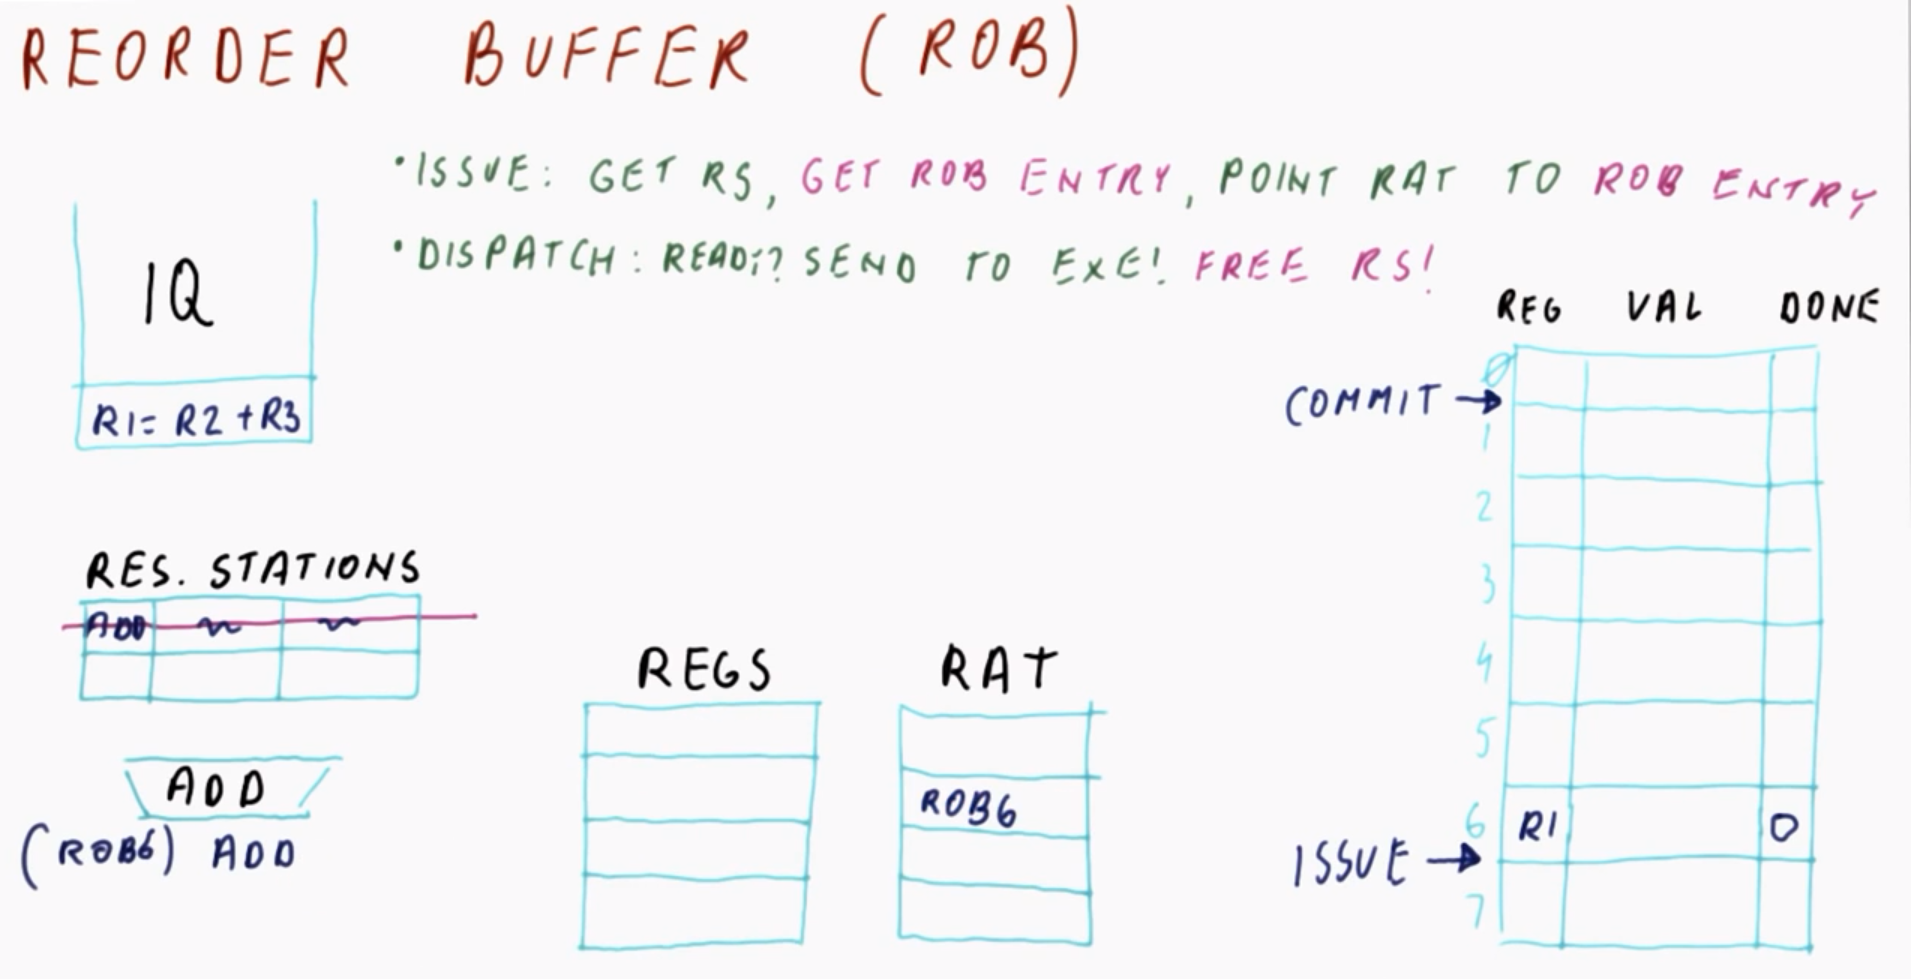 REORDER BUFFER (ROB)
• ISSUE: GET RS, GET ROB ENTRY, POINT RAT TO ROB ENTRY
• DISPATCH: READY? SEND TO EXE! FREE RS!
IQ
R1= R2 +R3
RES. STATIONS
ADD
ADD
(ROB6) ADD
REGS
RAT
ROB6
REG VAL DONE
COMMIT →
0
1
2
3
4
5
6 R1 0
ISSUE →
7